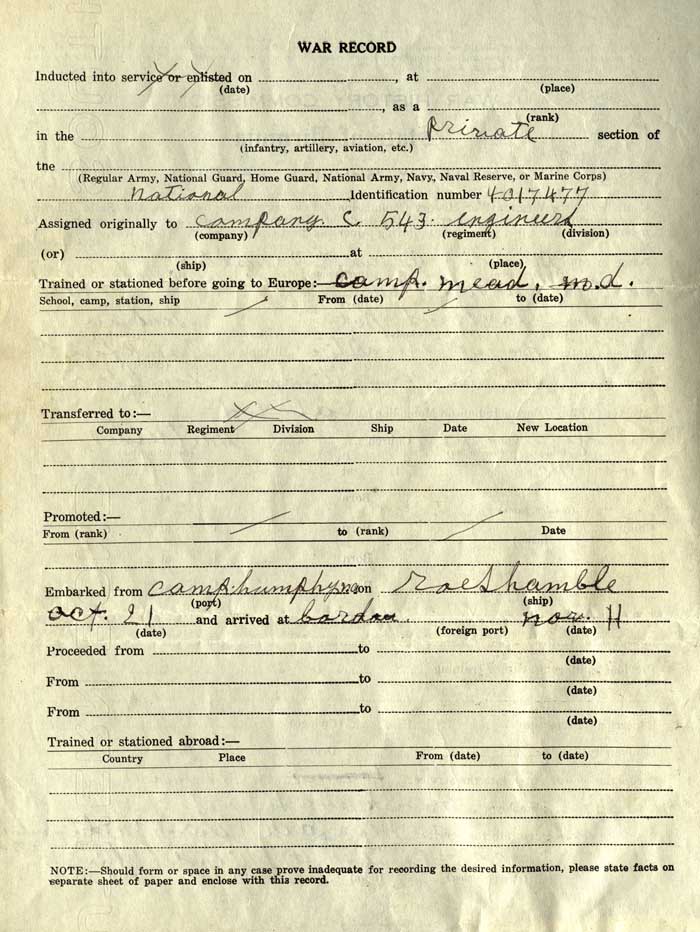 WAR RECORD
Inducted into service or enlisted on , at
(date) (place)
, as a
(rank)
in the private section of
(infantry, artillery, aviation, etc.)
the
(Regular Army, National Guard, Home Guard, National Army, Navy, Naval Reserve, or Marine Corps)
national Identification number 4017477
Assigned originally to company C 543 engineers
(company) (regiment) (division)
(or) at
(ship) (place)
Trained or stationed before going to Europe:— camp. mead. m.d.
School, camp, station, ship From (date) to (date)
Transferred to:—
Company Regiment Division Ship Date New Location
Promoted:—
From (rank) to (rank) Date
Embarked from camp. on roeshamble
(port) (ship)
oct. 21 and arrived at nov. 11
(date) (foreign port) (date)
Proceeded from to
(date)
From to
(date)
From to
(date)
Trained or stationed abroad:—
Country Place From (date) to (date)
NOTE:—Should form or space in any case prove inadequate for recording the desired information, please state facts on
separate sheet of paper and enclose with this record.